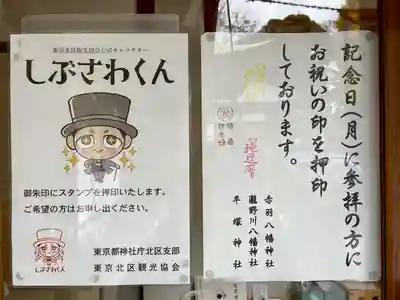 東京北区観光協会公式キャラクター
しぶさわくん
御朱印にスタンプを押印いたします。
ご希望の方はお申し出ください。
しぶさわくん
東京都神社庁北区支部
東京北区観光協会
記念日(月)に参拝の方に
お祝いの印を押印
しております。
赤羽八幡神社
瀧野川八幡神社
平塚神社